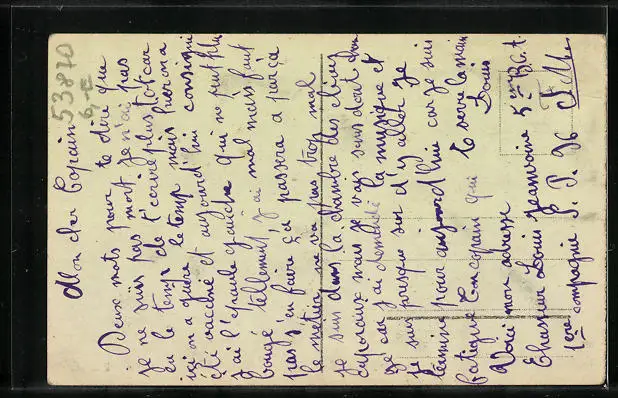 Mon cher Copain
53870
Deux mots pour te dire que
je ne suis pas mort je n'ai pas
eu le temps de t'ecrire plus tot car
ici on a guère le temps mais
été vacciné et aujourd'hui consigné
j'ai l'epaule gauche qui ne peut plus
bougé tellement j'ai mal mais faut
pas s'en faire ça passera a part ça
le metier ne va pas trop mal
je suis dans la chambre des élèves
caporaux mais je vais sans dout
car j'ai demandé la musique et
je suis presque sur d'y aller je
termine pour aujourd'hui car je suis
fatigué Ton copain qui te serre la main
Louis
Voici mon adresse
Chasseur Louis Jeanvoine 5em B.C.t.
1ere compagnie S.P. 96